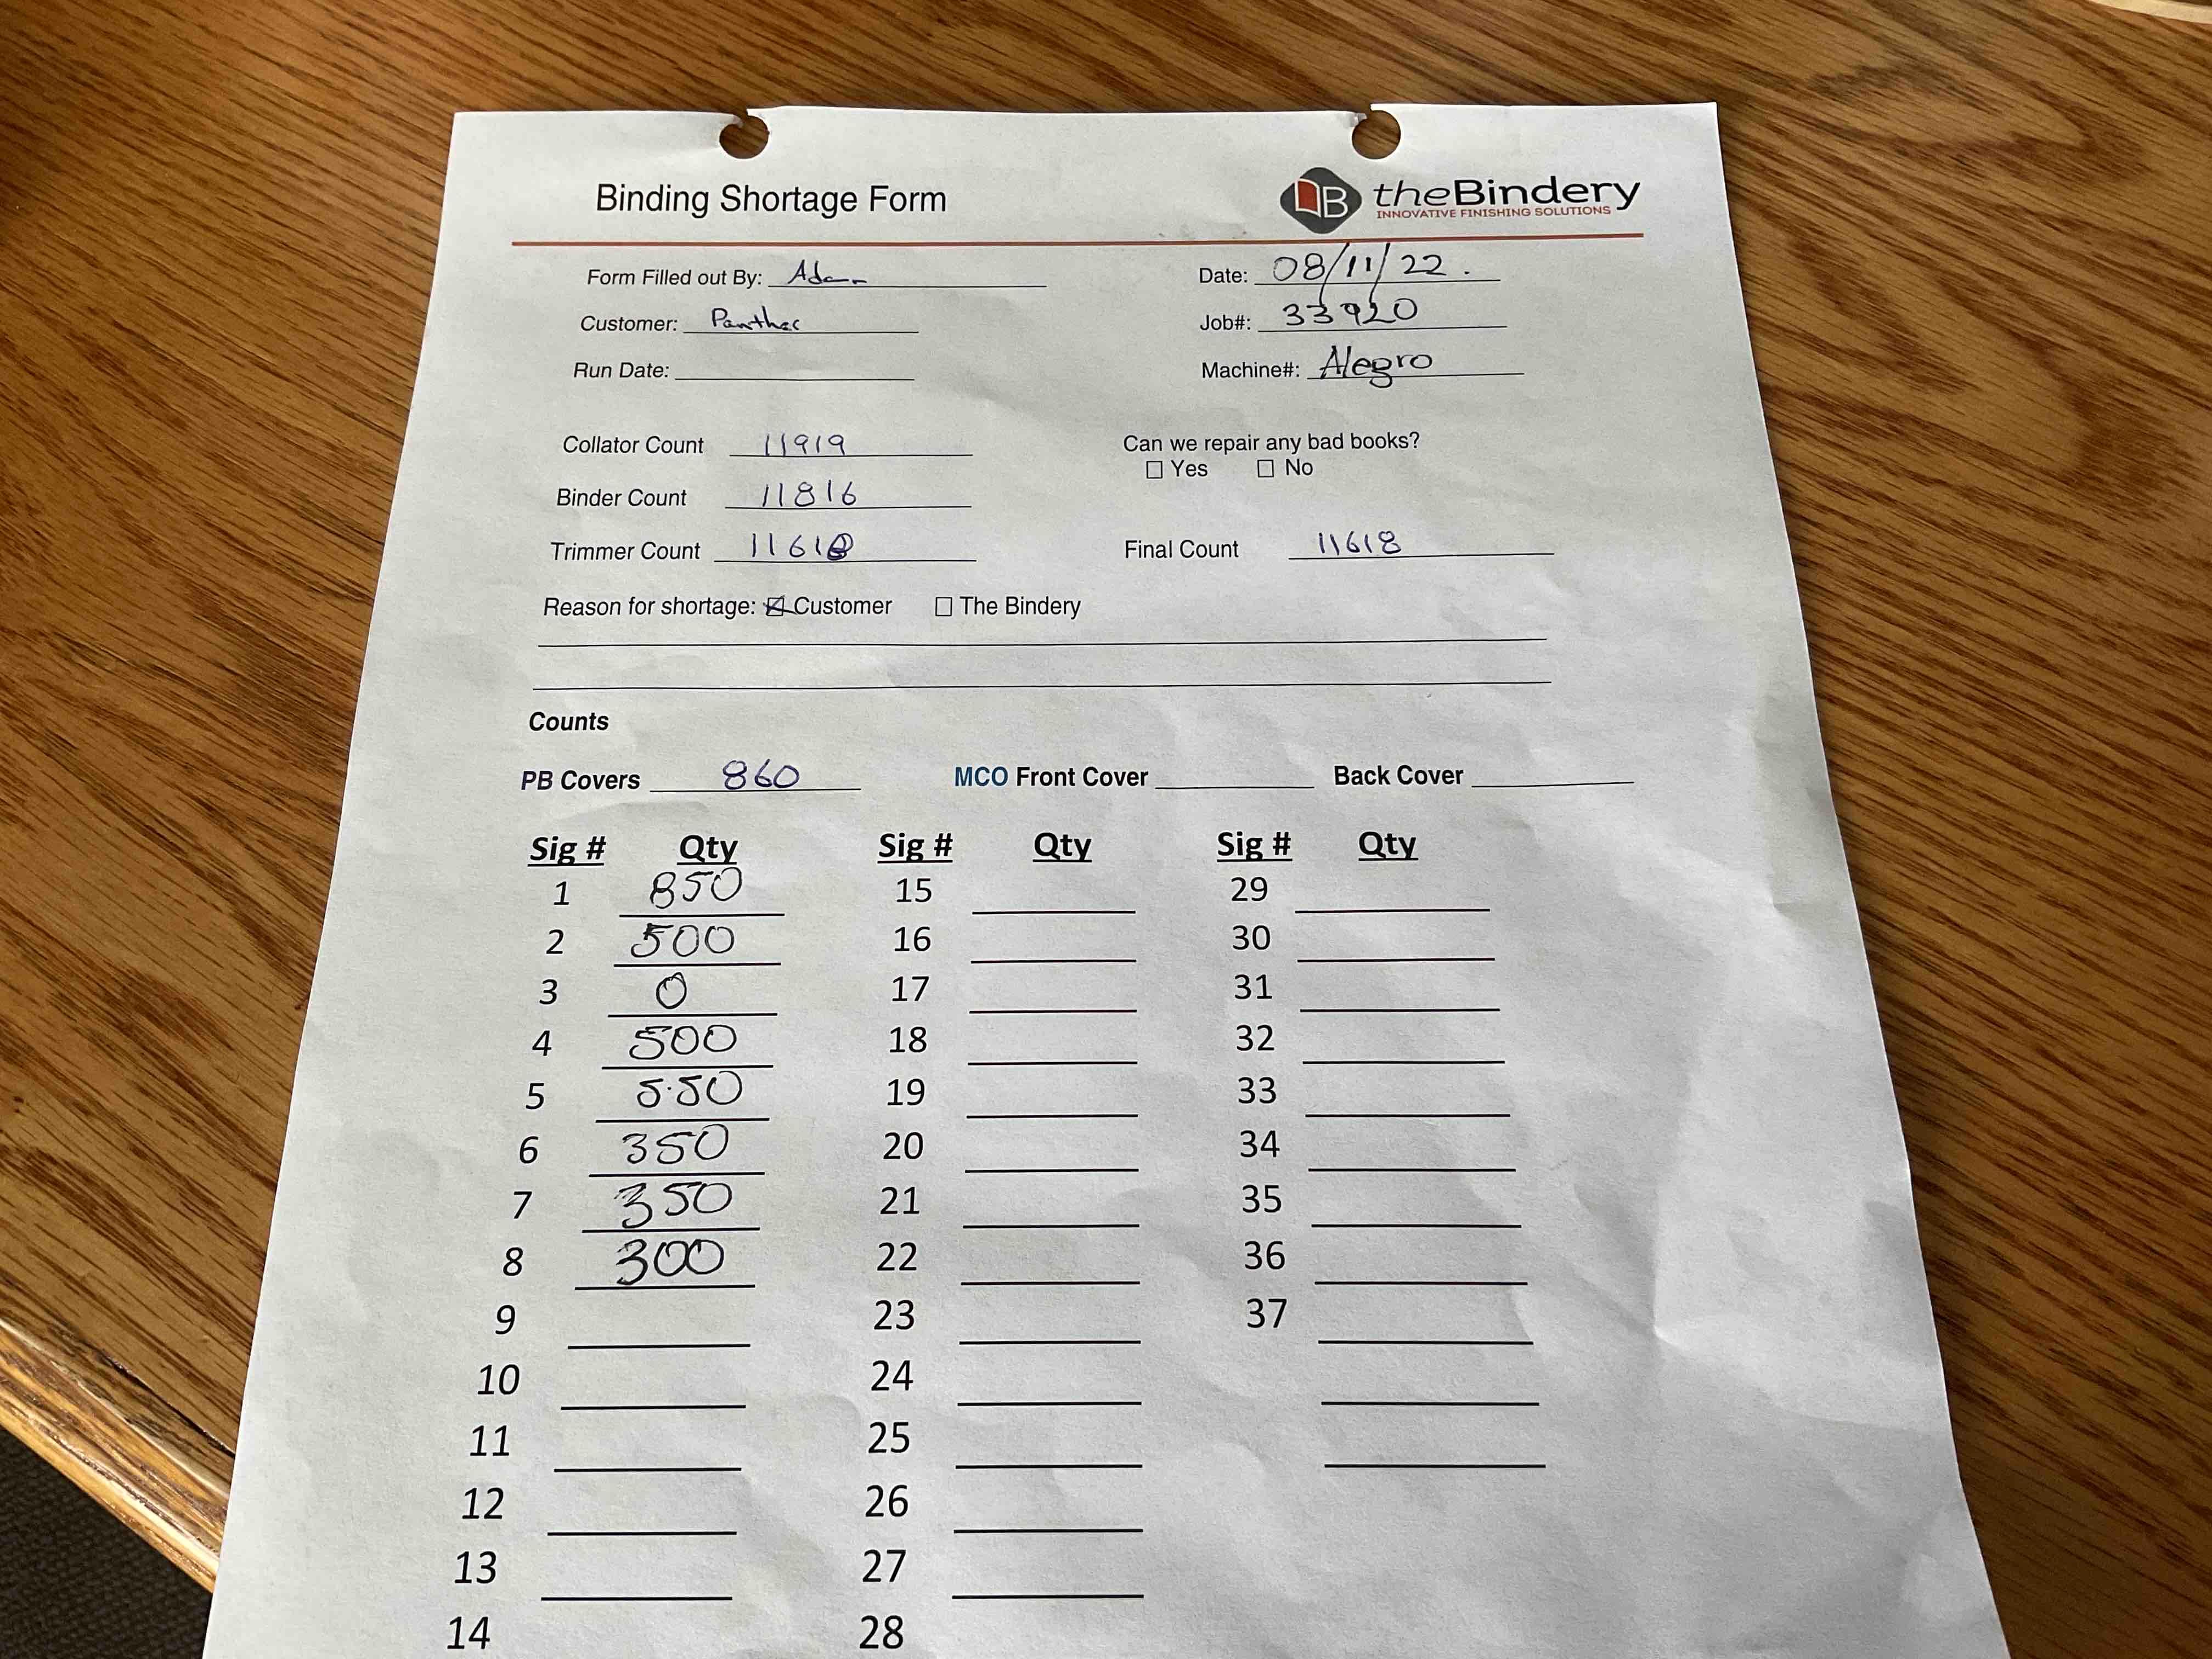 Binding Shortage Form
B theBindery
INNOVATIVE FINISHING SOLUTIONS
Form Filled out By: Adam Date: 08/11/22.
Customer: Panther Job#: 33920
Run Date: Machine#: Alegro
Collator Count 11919 Can we repair any bad books?
☐ Yes ☐ No
Binder Count 11816
Trimmer Count 11618 Final Count 11618
Reason for shortage: ☑ Customer ☐ The Bindery
Counts
PB Covers 860 MCO Front Cover Back Cover
Sig # Qty Sig # Qty Sig # Qty
1 850 15 29
2 500 16 30
3 0 17 31
4 500 18 32
5 5.50 19 33
6 350 20 34
7 350 21 35
8 300 22 36
9 23 37
10 24
11 25
12 26
13 27
14 28